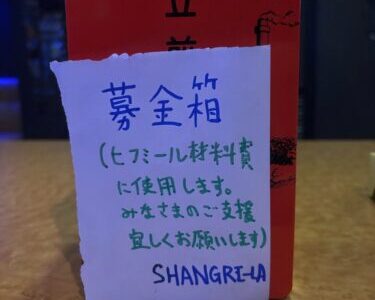 立
募金箱
(ヒフミール材料費
に使用します。
みなさまのご支援
宜しくお願いします)
SHANGRI-LA